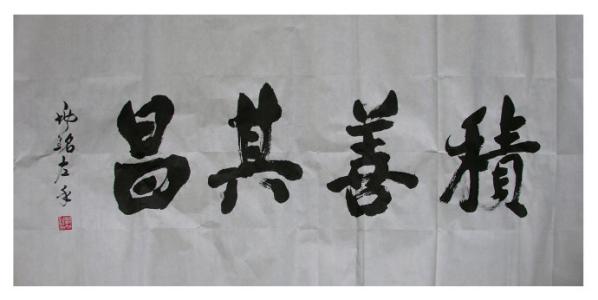 積善其昌